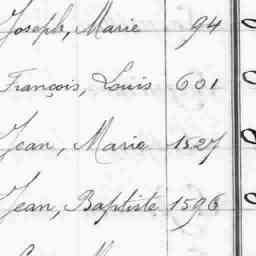 Joseph, Marie 94
François, Louis 601
Jean, Marie 1527
Jean, Baptiste 1596